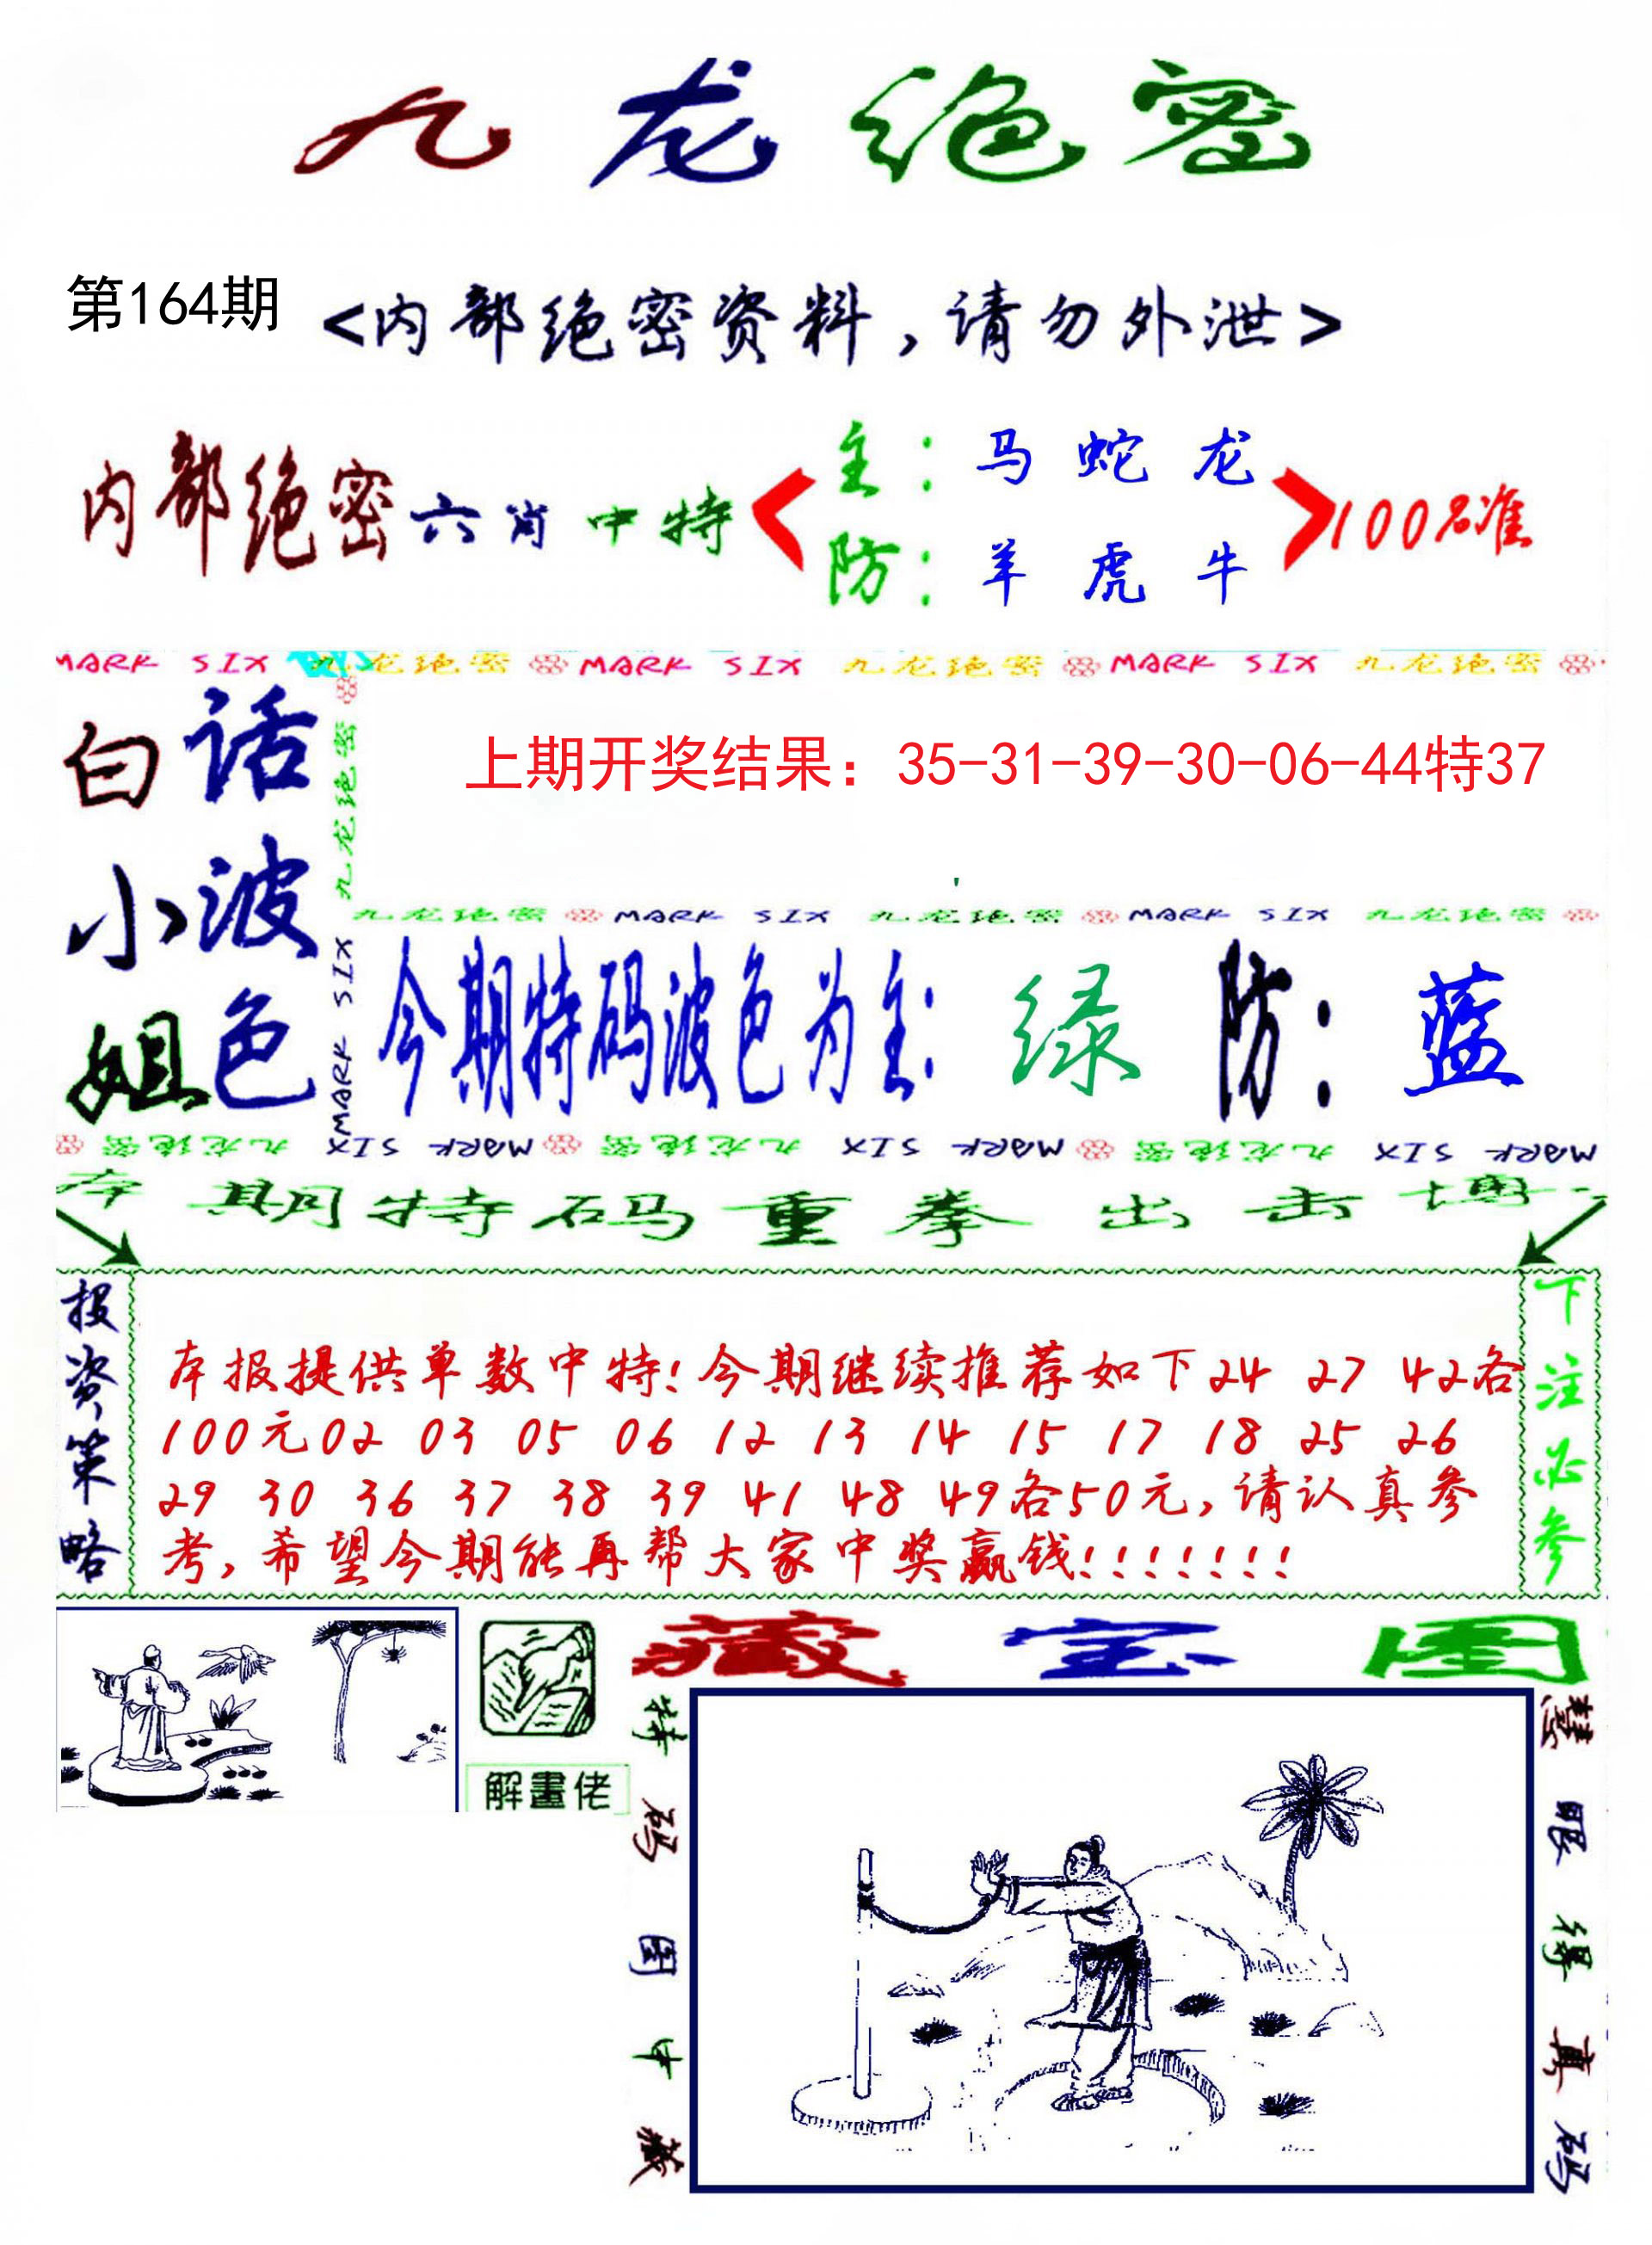 九龙绝密
第164期 <内部绝密资料，请勿外泄>
内部绝密六肖中特
主：马 蛇 龙
防：羊 虎 牛
100%准
MARK SIX 九龙绝密 MARK SIX 九龙绝密 MARK SIX 九龙绝密
白小姐
话波色
九龙绝密
MARK SIX
上期开奖结果：35-31-39-30-06-44特37
九龙绝密 MARK SIX 九龙绝密 MARK SIX 九龙绝密
今期特码波色为主：绿 防：蓝
九龙绝密 MARK SIX 九龙绝密 MARK SIX 九龙绝密 MARK SIX
本期特码重拳出击博
投资策略
本报提供单数中特!今期继续推荐如下24 27 42各
100元02 03 05 06 12 13 14 15 17 18 25 26
29 30 36 37 38 39 41 48 49各50元,请认真参
考,希望今期能再帮大家中奖赢钱!!!!!!!
下注必参
解畫佬
藏宝图
特码图中藏
慧眼得真码